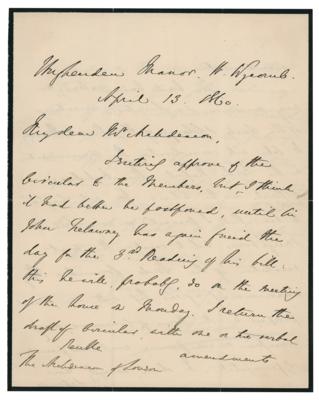 Hughenden Manor. H. Wycomb.
April 13. 1860.
My dear Mr Archdeacon,
I entirely approve of the
Circular to the Members, but, I think
it had better be postponed, until Sir
John Trelawny has again fixed the
day for the 3rd Reading of his bill.
this he will probably do on the meeting
of the house on Monday. I return the
draft of circular with one or two verbal
amendments
The Archdeacon of London